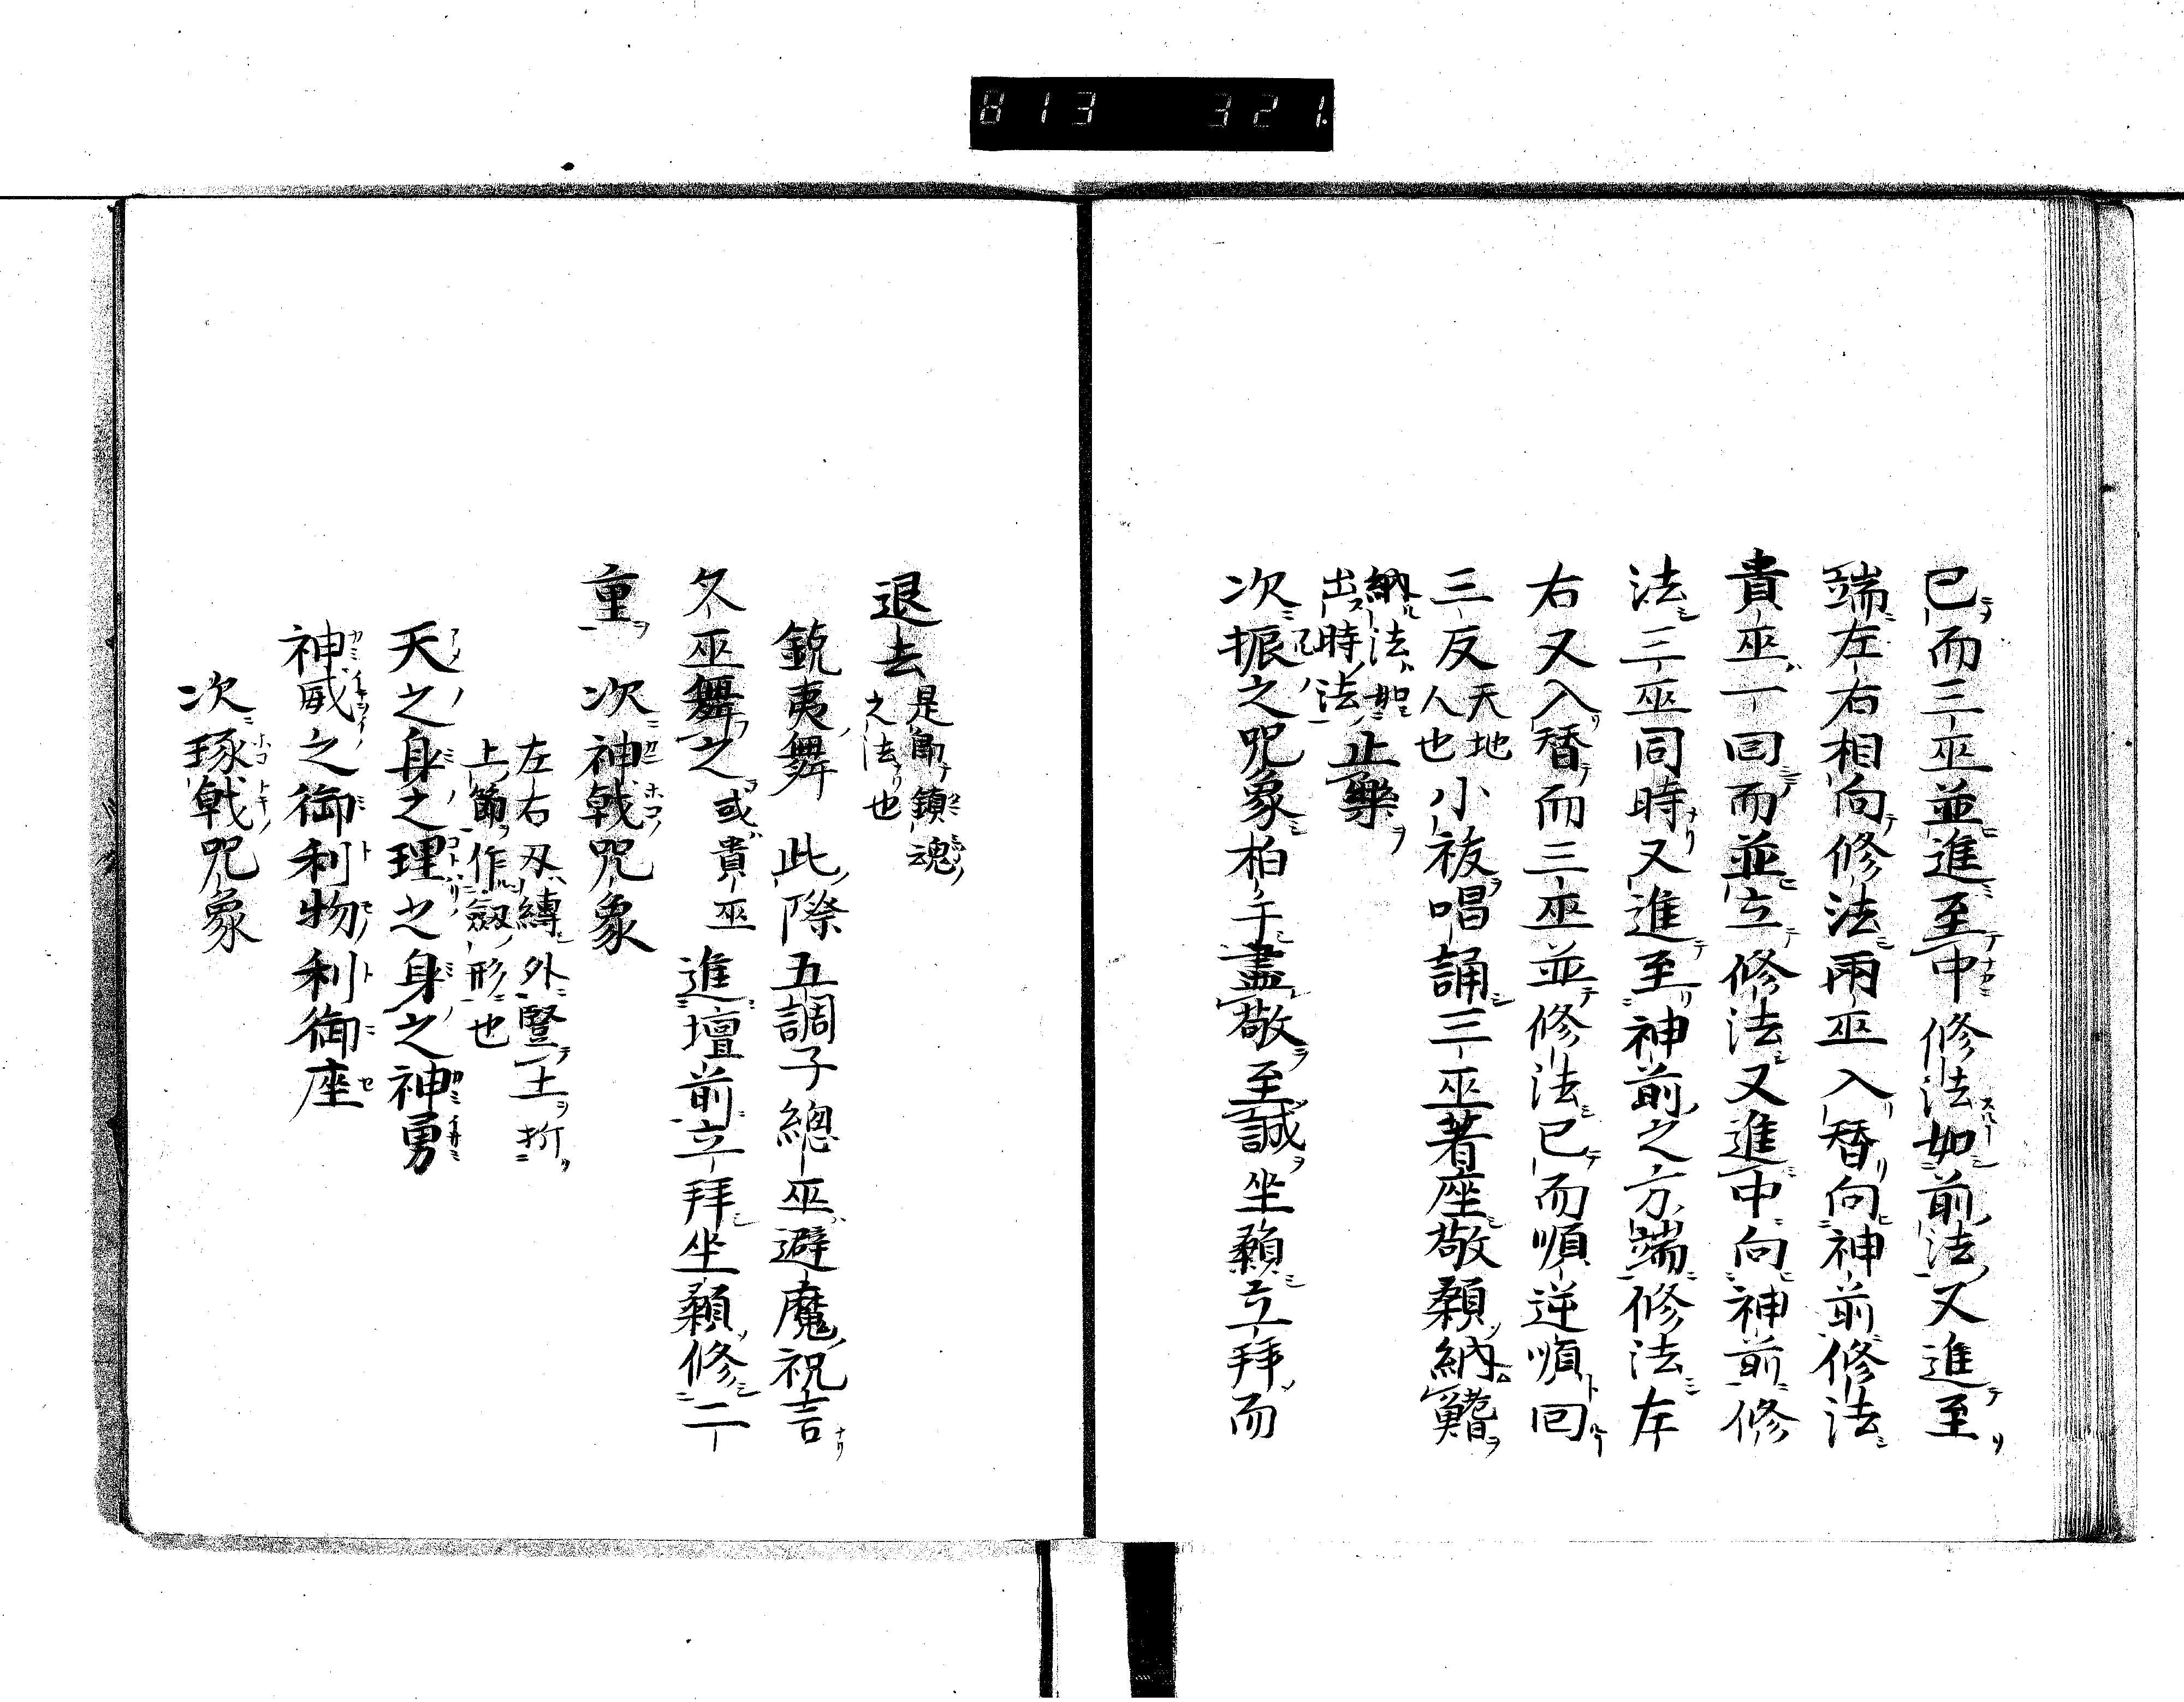 813 321
已而三巫並進至中修法如前法又進至
端左右相向修法兩巫入替向神前修法
貴巫一回而並立修法又進中向神前修
法三巫同時又進至神前之方端修法左
右又入替而三巫並修法已而順逆順回
三反天地人也小祓唱誦三巫著座敬頼納鬚
納法如出時法止樂
次振之咒象柏手盡敬至誠坐頼立拜而
退去是節鎮魂之法也
鋭夷舞 此際五調子總巫避魔祝吉
久巫舞之或貴巫進壇前立拜坐頼修二
重 次神戟咒象
左右刄縛外豎土折
上節作劔形也
天之身之理之身之神勇
神威之御利物利御座
次琢戟咒象